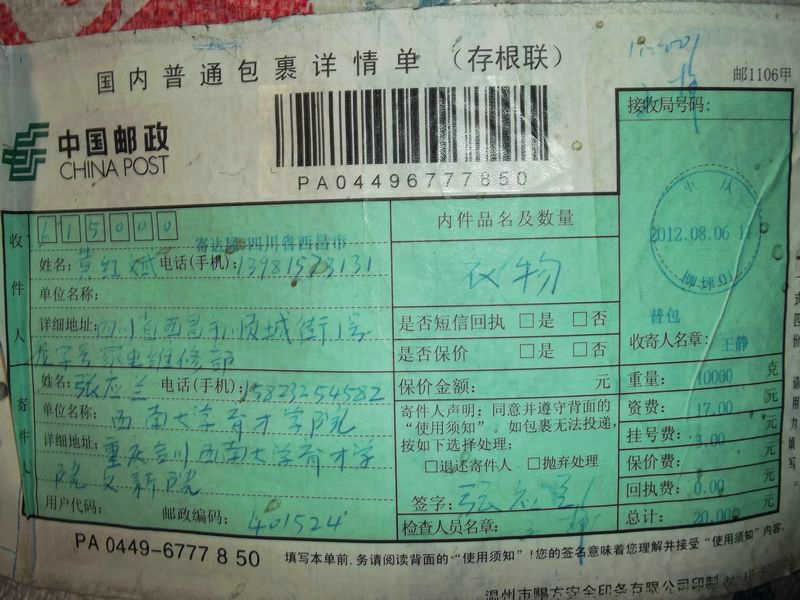 国内普通包裹详情单 (存根联)
邮1106甲
中国邮政
CHINA POST
PA04496777850
接收局号码:
收件人
615000
寄达局:四川省西昌市
姓名: 电话(手机):13981573131
单位名称:
详细地址:四川省西昌市顺城街1号
家电维修部
内件品名及数量
衣物
是否短信回执 □是 □否
是否保价 □是 □否
2012.08.06
普包
收寄人名章: 王静
寄件人
姓名:张应兰 电话(手机):15823254582
单位名称:西南大学育才学院
详细地址:重庆合川西南大学育才学
院文新院
用户代码: 邮政编码:401524
保价金额: 元
寄件人声明:同意并遵守背面的
“使用须知”,如包裹无法投递,
按如下选择处理:
□退还寄件人 □抛弃处理
签字:张应兰
检查人员名章:
重量: 10000 克
资费: 17.00 元
挂号费: 3.00 元
保价费: 元
回执费: 0.00 元
总计: 20.000 元
PA 0449-6777 8 50
填写本单前,务请阅读背面的“使用须知”!您的签名意味着您理解并接受“使用须知”内容.
温州市赐方安全印务有限公司印制